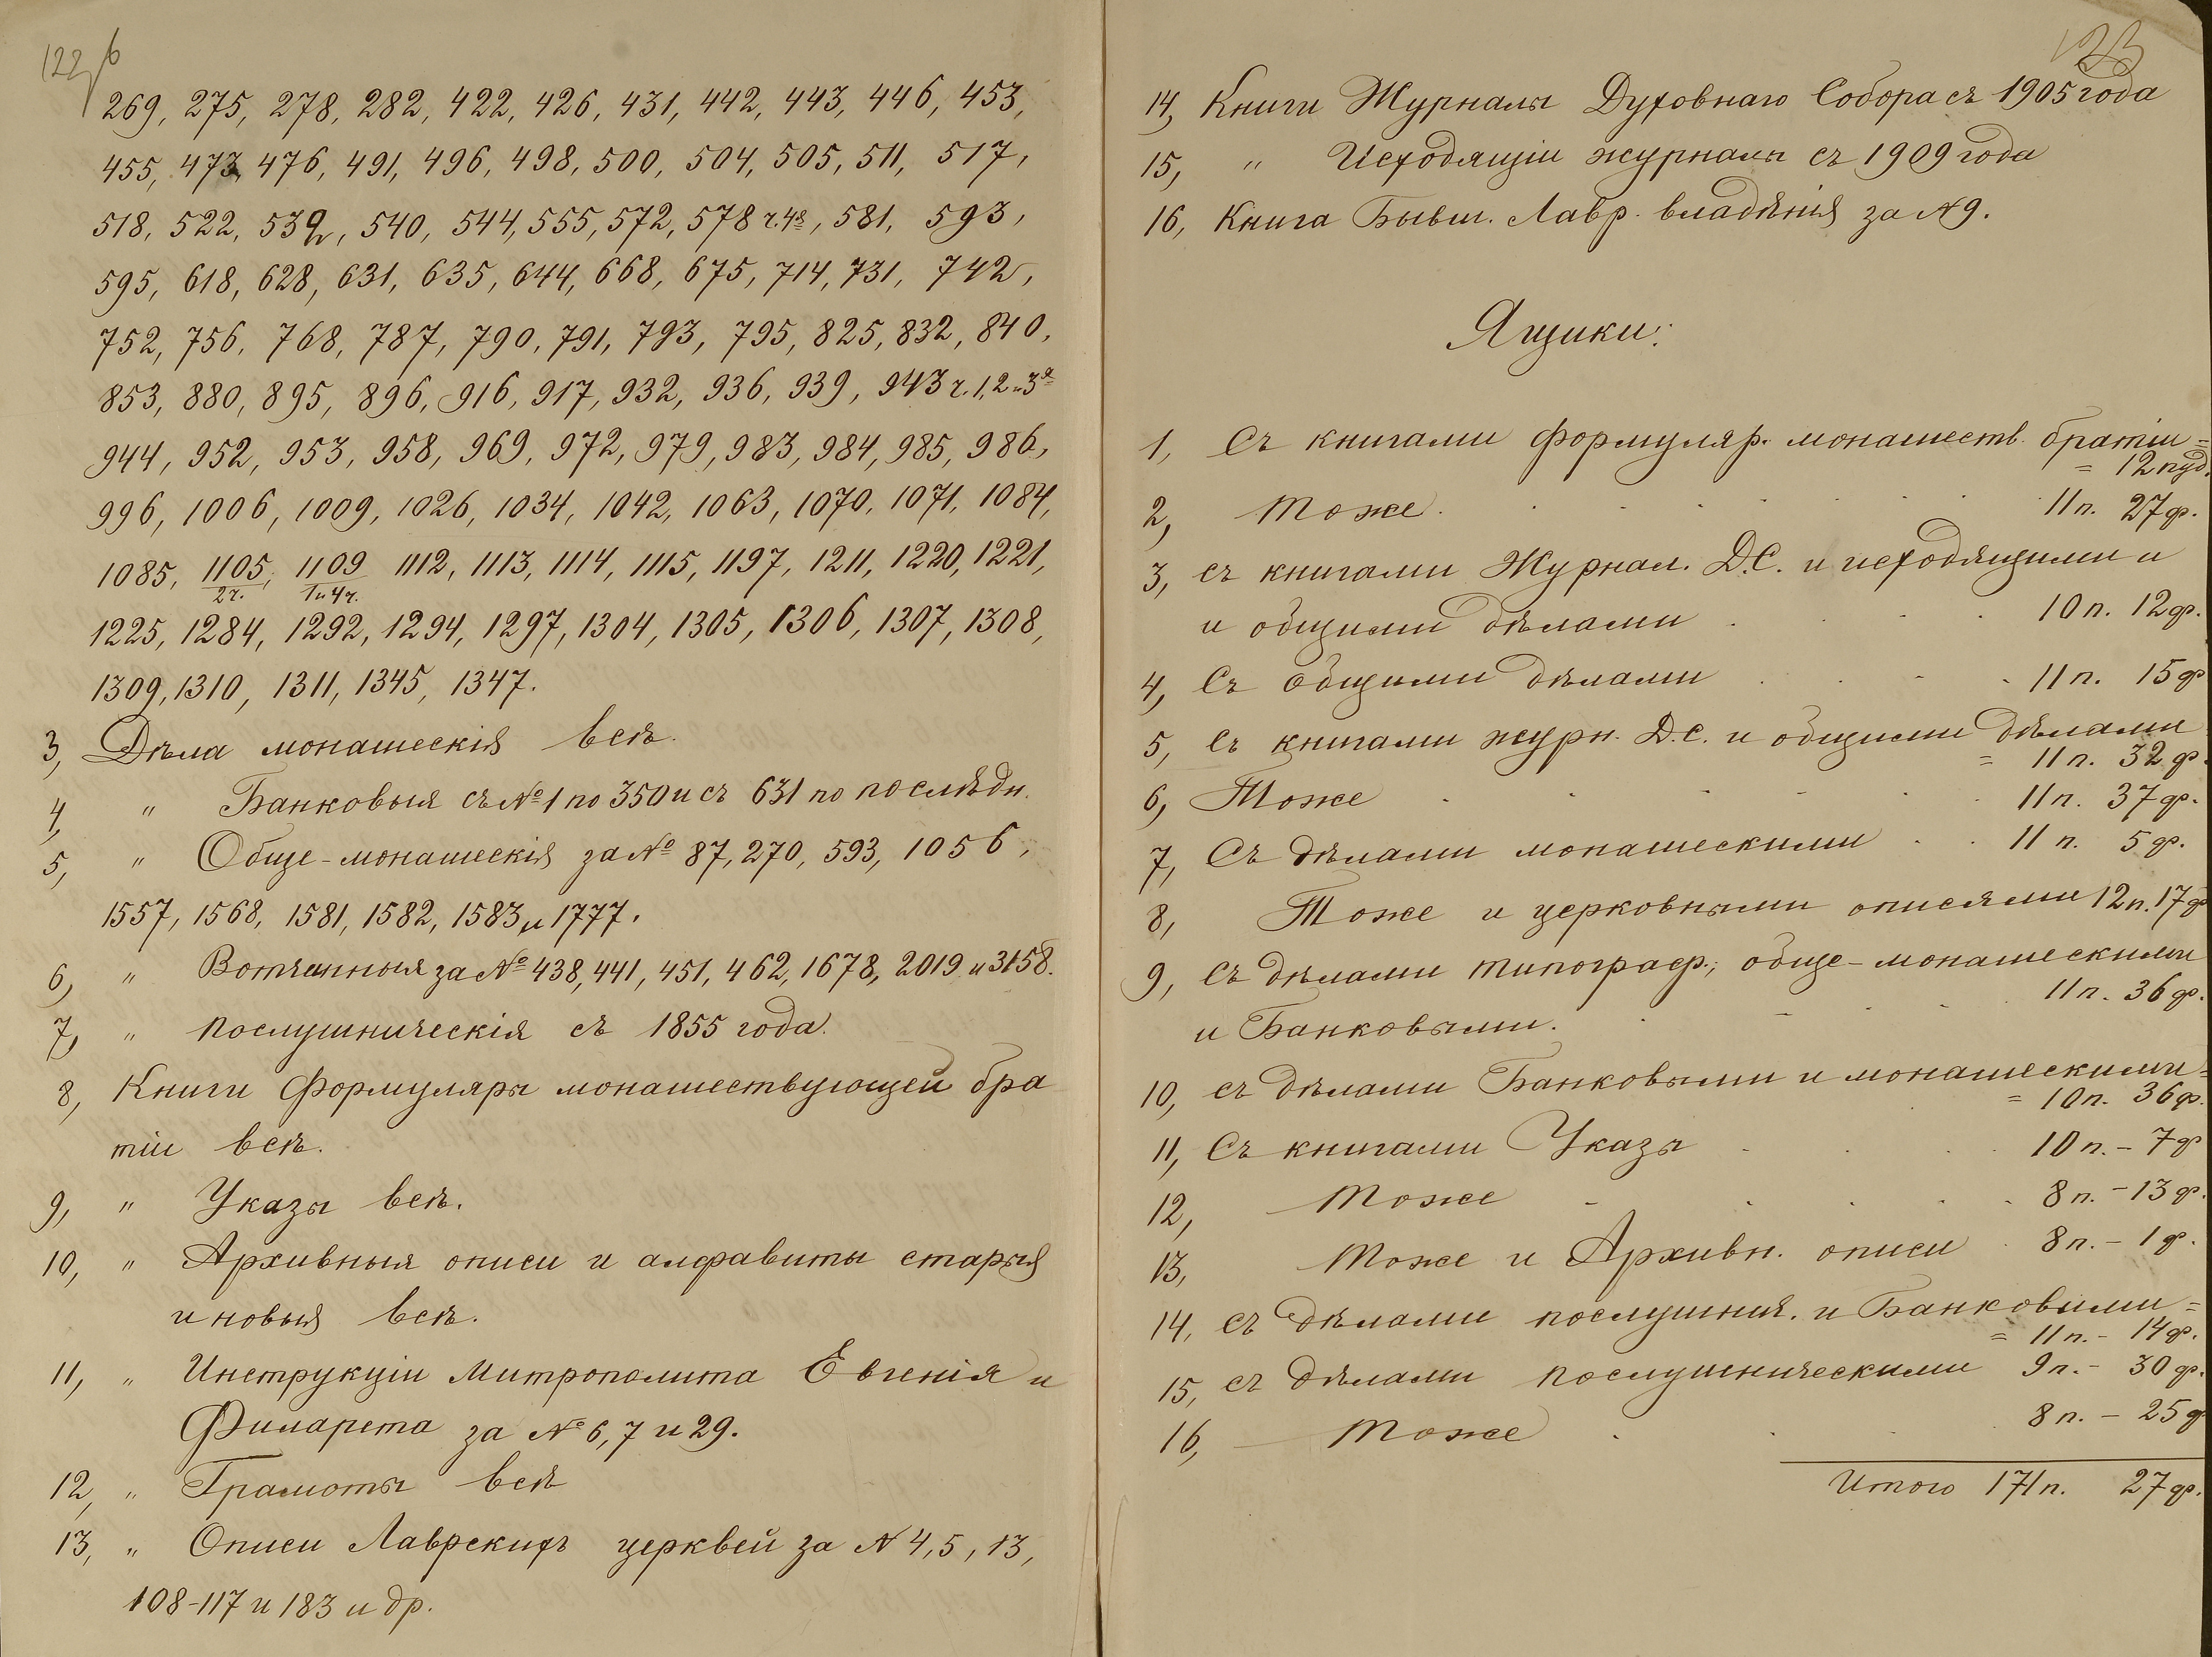 122 б
269, 275, 278, 282, 422, 426, 431, 442, 443, 446, 453,
455, 473, 476, 491, 496, 498, 500, 504, 505, 511, 517,
518, 522, 539, 540, 544, 555, 572, 578 ч. 4я, 581, 593,
595, 618, 628, 631, 635, 644, 668, 675, 714, 731, 742,
752, 756, 768, 787, 790, 791, 793, 795, 825, 832, 840,
853, 880, 895, 896, 916, 917, 932, 936, 939, 943 ч. 1, 2 и 3я
944, 952, 953, 958, 969, 972, 979, 983, 984, 985, 986,
996, 1006, 1009, 1026, 1034, 1042, 1063, 1070, 1071, 1084,
1085, 1105, 1109 1112, 1113, 1114, 1115, 1197, 1211, 1220, 1221,
2 ч. 1 и 4 ч.
1225, 1284, 1292, 1294, 1297, 1304, 1305, 1306, 1307, 1308,
1309, 1310, 1311, 1345, 1347.
3, Дѣла монашескія всѣ.
4, " Банковыя съ № 1 по 350 и съ 631 по послѣдн.
5, " Обще-монашескія за № 87, 270, 593, 1056,
1557, 1568, 1581, 1582, 1583, и 1777.
6, " Вотчинныя за № 438, 441, 451, 462, 1678, 2019 и 3158.
7, " послушническія съ 1855 года.
8, Книги Формуляры монашествующей бра
тіи всѣ.
9, " Указы всѣ.
10, " Архивныя описи и алфавиты старыя
и новыя всѣ.
11, " Инструкціи Митрополита Евгенія и
Филарета за № 6, 7 и 29.
12, " Грамоты всѣ
13, " Описи Лаврскихъ церквей за № 4, 5, 13,
108-117 и 183 и др.
123
14, Книги Журналы Духовнаго Собора съ 1905 года
15, " Исходящіи журналы съ 1909 года
16, Книга Бывш. Лавр. владѣнія за № 9.
Ящики:
1, Съ книгами формуляр. монашеств. братіи =
= 12 пуд.
2, Тоже. 11 п. 27 ф.
3, съ книгами Журнал. Д.С. и исходящими и
и общими дѣлами 10 п. 12 ф.
4, Съ общими дѣлами 11 п. 15 ф
5, Съ книгами журн. Д.С. и общими дѣлами
= 11 п. 32 ф.
6, Тоже 11 п. 37 ф.
7, Съ дѣлами монашескими 11 п. 5 ф.
8, Тоже и церковными описями 12 п. 17 ф
9, Съ дѣлами типограф., обще-монашескими
и Банковыми. 11 п. 36 ф.
10, съ дѣлами Банковыми и монашескими =
= 10 п. 36 ф.
11, Съ книгами Указы 10 п. - 7 ф
12, Тоже 8 п. - 13 ф.
13, Тоже и Архивн. описи 8 п. - 1 ф.
14, съ дѣлами послушнич. и Банковыми =
= 11 п. - 14 ф.
15, съ дѣлами послушническими 9 п. - 30 ф.
16, Тоже 8 п. - 25 ф
Итого 171 п. 27 ф.